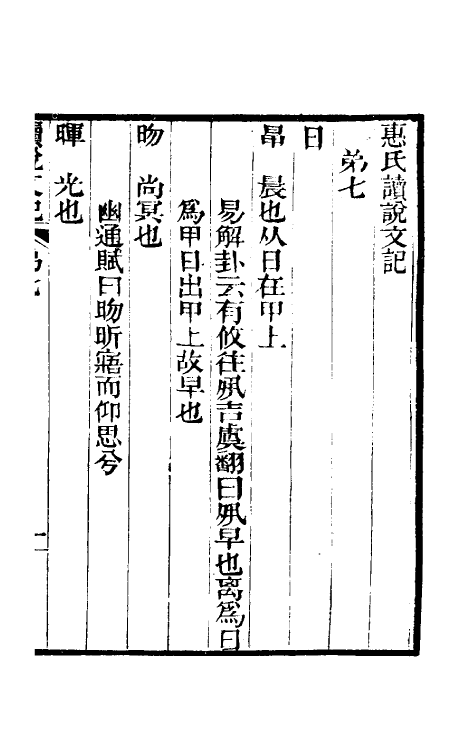 惠氏讀說文記
弟七
日
𣅊 晨也从日在甲上
易解卦云有攸往夙吉虞翻曰夙早也离爲日
爲甲日出甲上故早也
昒 尚冥也
幽通賦曰昒昕寤而仰思兮
暉 光也